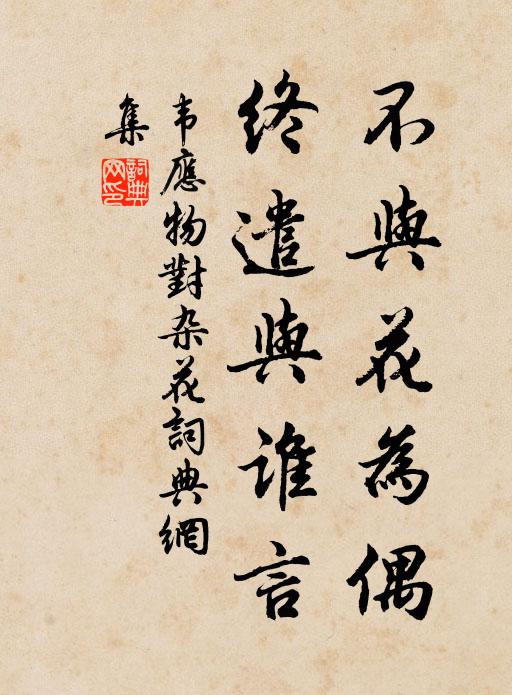 不與花為偶
終遣與誰言
韦應物對杂花詞典網
集
詞典网印